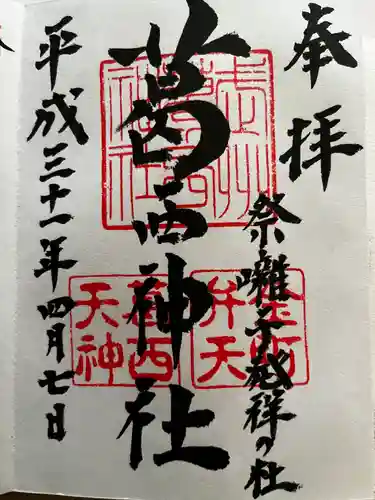 奉拝
祭囃子発祥の社
葛西神社
平成三十一年四月七日
葛西神社
葛西
天神
弁天